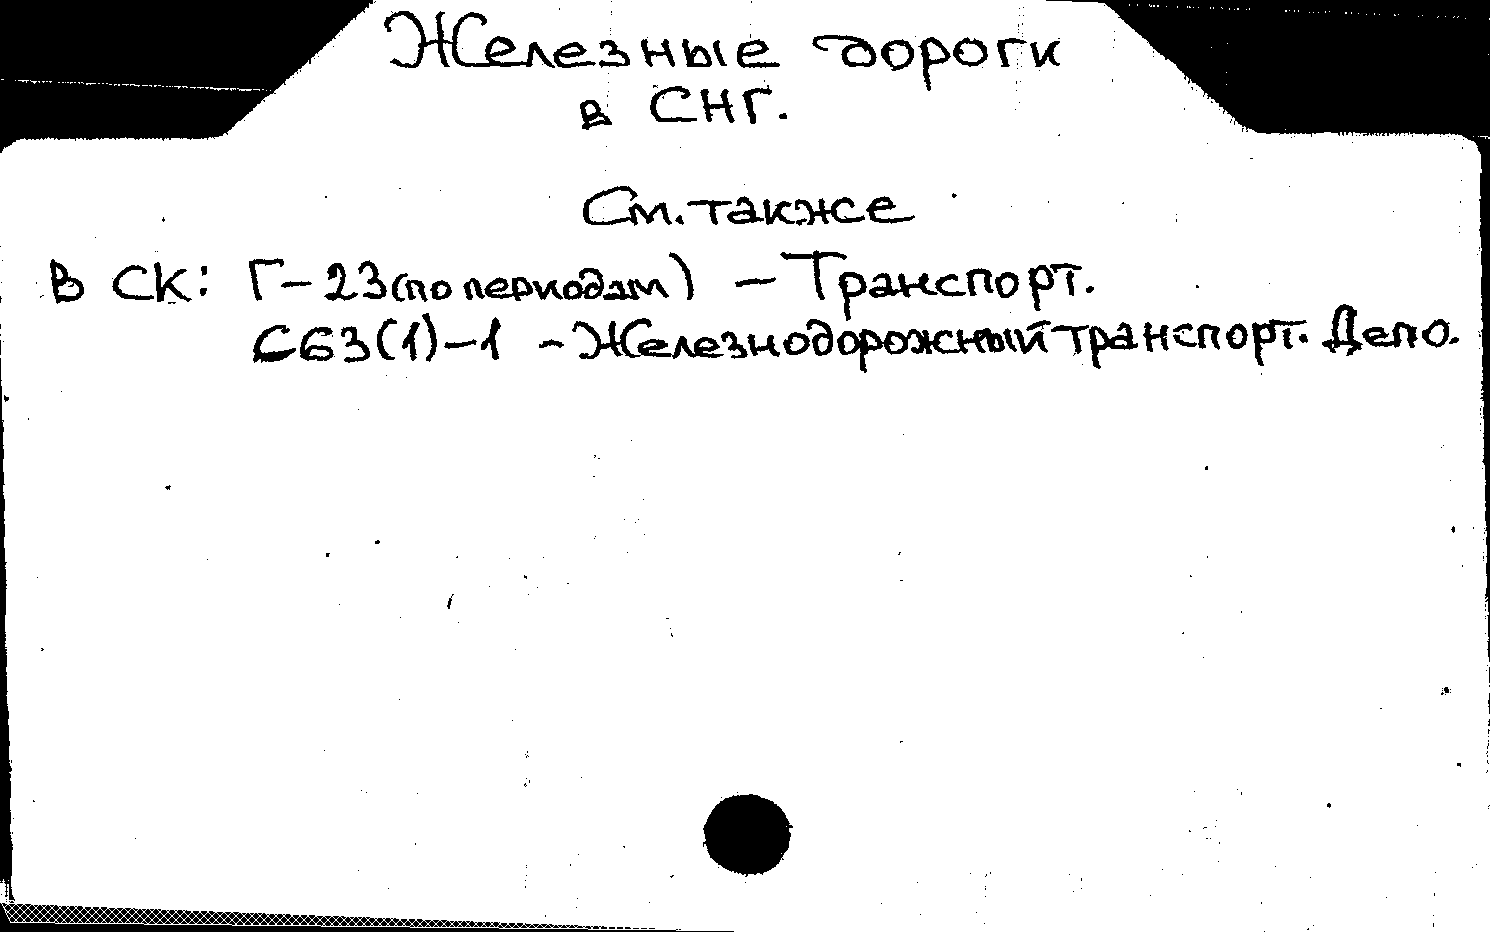 Железные дороги
в СНГ.
См. также
В СК: Г-23 (по периодам) - Транспорт.
С63(1)-1 - Железнодорожный транспорт. Депо.